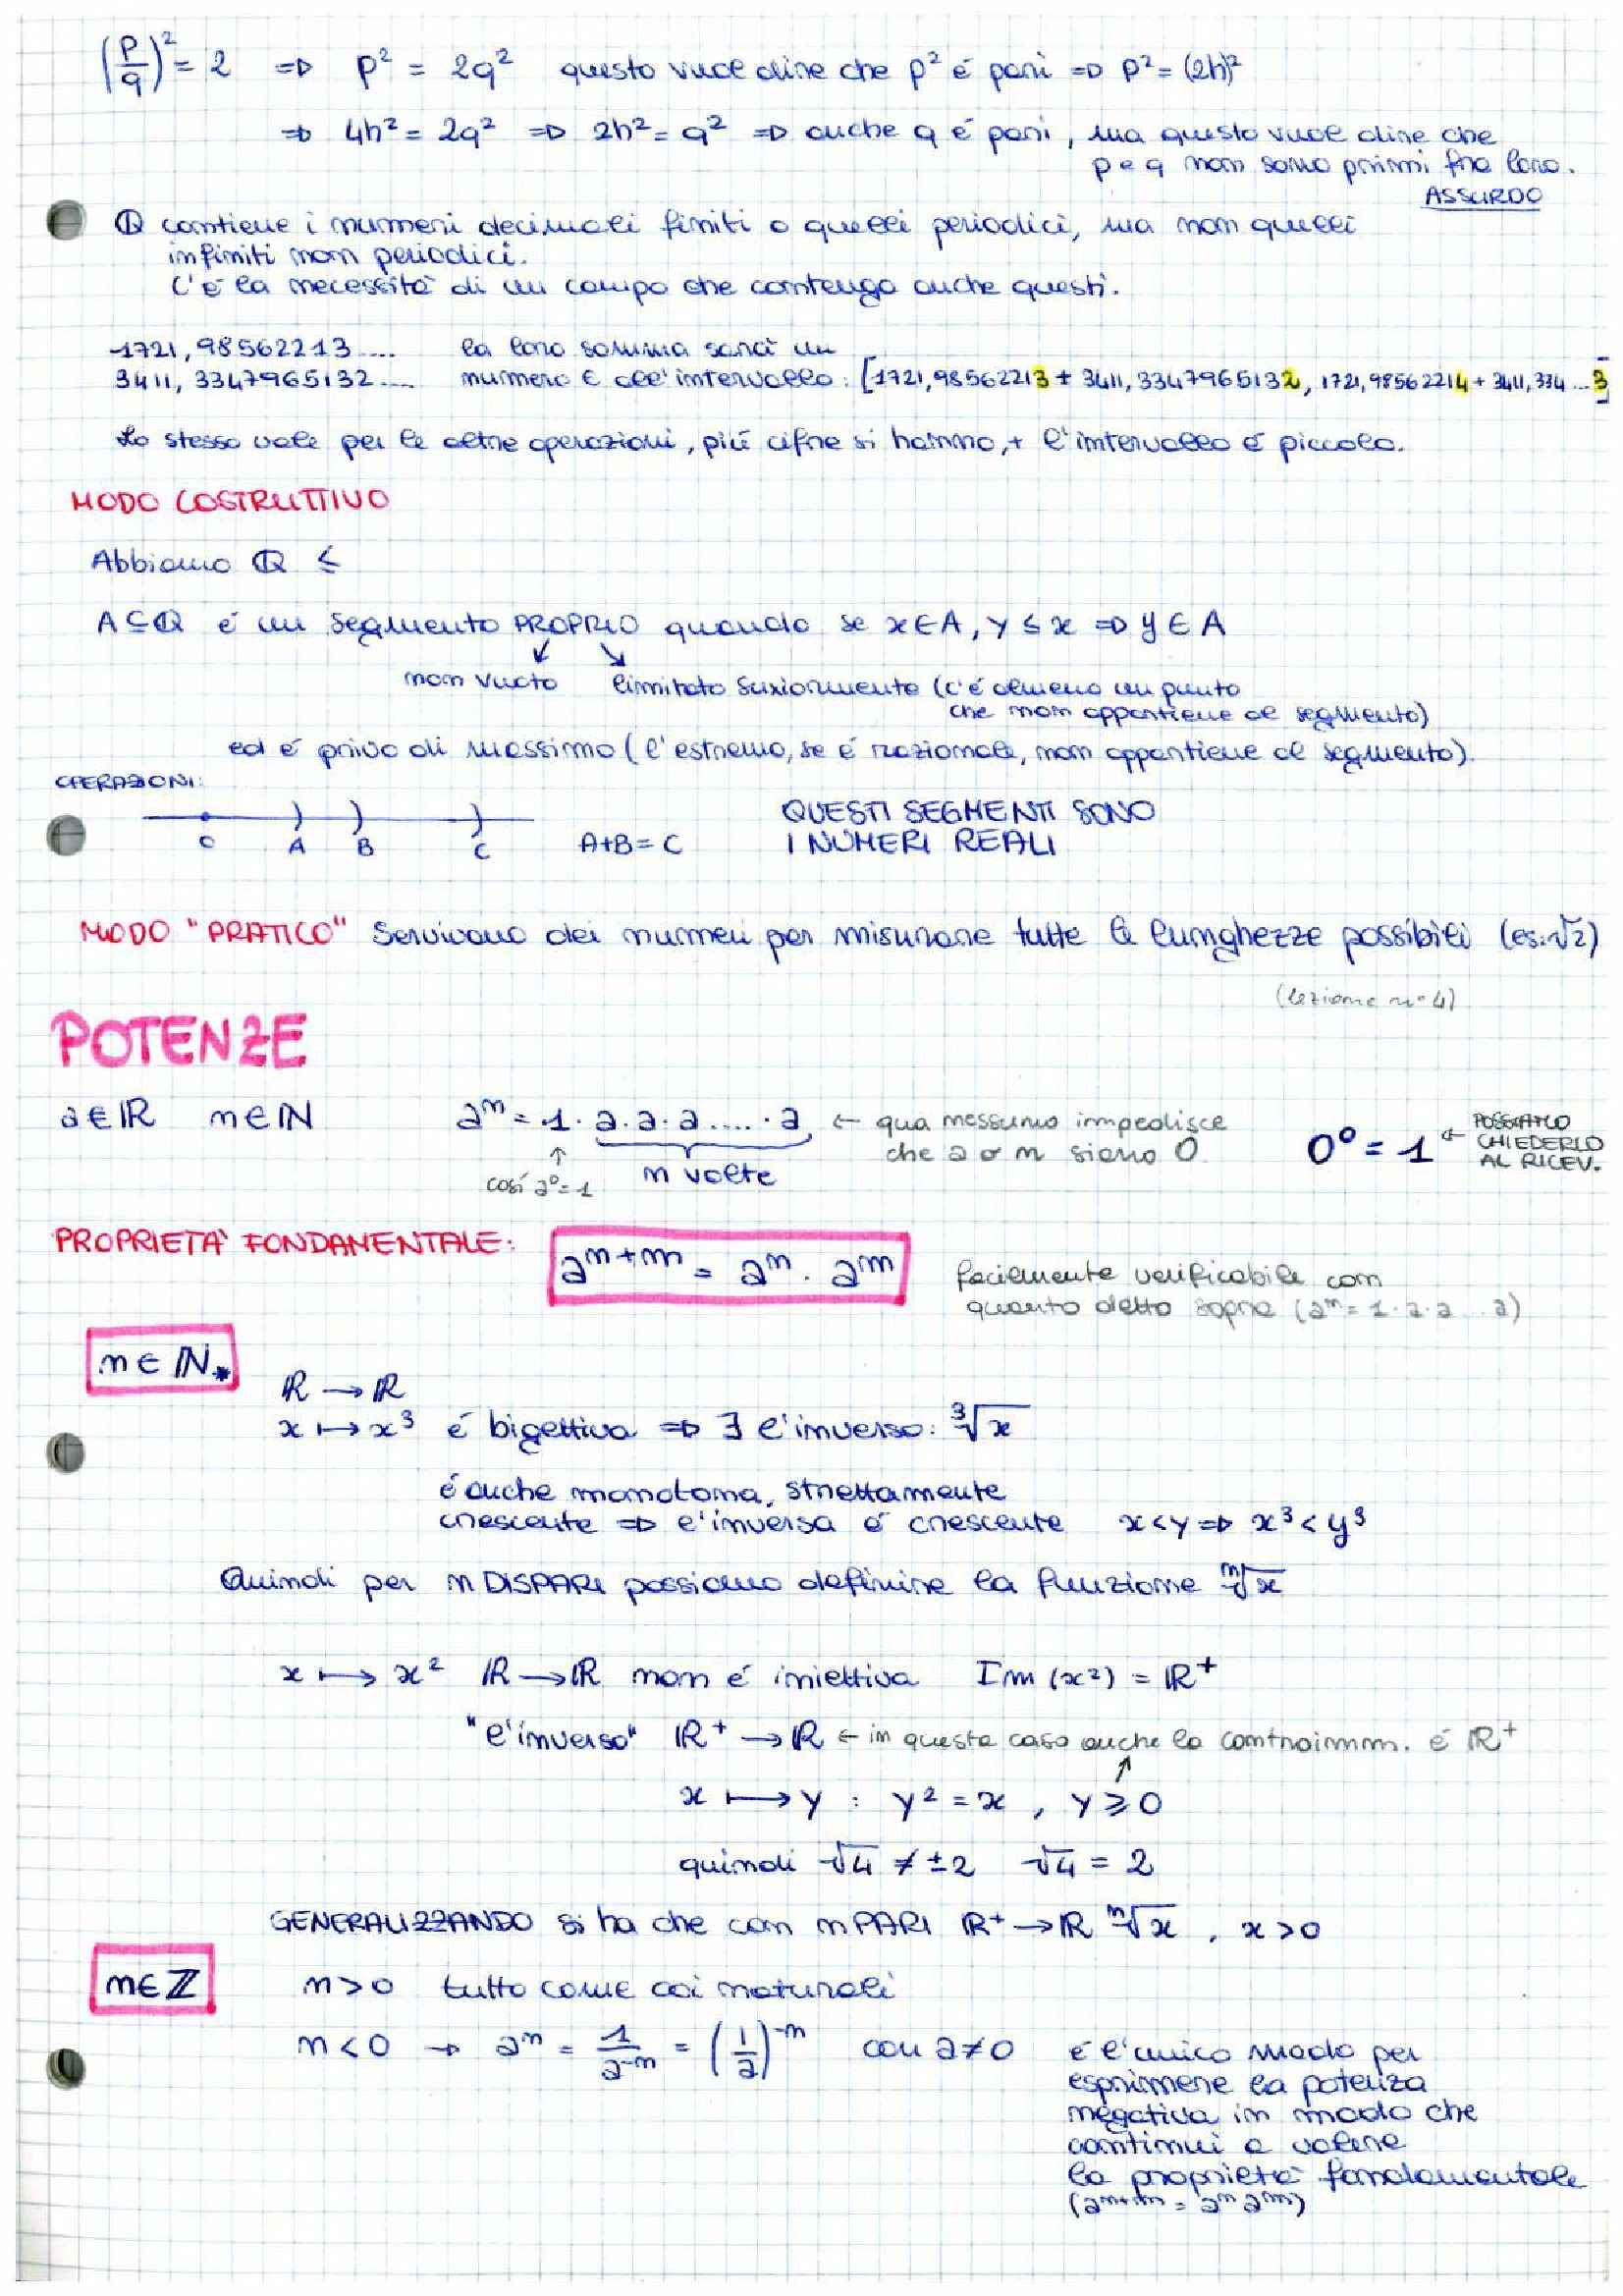 (p/q)² = 2 ⇒ p² = 2q² questo vuol dire che p² é pari ⇒ p² = (2h)²
⇒ 4h² = 2q² ⇒ 2h² = q² ⇒ anche q é pari, ma questo vuol dire che
p e q non sono primi fra loro.
ASSURDO
ℚ contiene i numeri decimali finiti o quelli periodici, ma non quelli
infiniti non periodici.
C'é la necessità di un campo che contenga anche questi.
1721,98562213.... la loro somma sarà un
3411,3347965132.... numero ∈ all'intervallo: [1721,98562213 + 3411,3347965132, 1721,98562214 + 3411,334...3]
Lo stesso vale per le altre operazioni, piú cifre si hanno, + l'intervallo é piccolo.
MODO COSTRUTTIVO
Abbiamo ℚ ≤
A⊆ℚ é un segmento PROPRIO quando se x∈A, y ≤ x ⇒ y∈A
non vuoto limitato sup.iormente (c'é almeno un punto
che non appartiene al segmento)
ed é privo di massimo (l'estremo, se é razionale, non appartiene al segmento).
OPERAZIONI:
0 A B C A+B = C
QUESTI SEGMENTI SONO
I NUMERI REALI
MODO "PRATICO" Servivano dei numeri per misurare tutte le lunghezze possibili (es. √2)
(lezione n° 4)
POTENZE
a∈ℝ n∈ℕ aⁿ = 1 · a · a · a .... · a ← qua nessuno impedisce
che a o n siano 0
↑ n volte
così a⁰ = 1
0⁰ = 1 ← POSSIAMO
CHIEDERLO
AL RICEV.
PROPRIETA' FONDAMENTALE: aⁿ⁺ᵐ = aⁿ · aᵐ
facilmente verificabile con
quanto detto sopra (aⁿ = 1·a·a...a)
n∈ℕ*
ℝ → ℝ
x ↦ x³ é bigettiva ⇒ ∃ l'inverso: ³√x
é anche monotona, strettamente
crescente ⇒ l'inversa é crescente x<y ⇒ x³<y³
Quindi per n DISPARI possiamo definire la funzione ⁿ√x
x ↦ x² ℝ → ℝ non é iniettiva Im(x²) = ℝ⁺
"l'inverso" ℝ⁺ → ℝ ← in questo caso anche la controimm. é ℝ⁺
↑
x ↦ y : y² = x , y ⩾ 0
quindi √4 ≠ ±2 √4 = 2
GENERALIZZANDO si ha che con n PARI ℝ⁺ → ℝ ⁿ√x , x > 0
n∈ℤ
n > 0 tutto come coi naturali
n < 0 → aⁿ = 1/a⁻ⁿ = (1/a)⁻ⁿ con a ≠ 0
é l'unico modo per
esprimere la potenza
negativa in modo che
continui a valere
la proprietà fondamentale
(aⁿ⁺ᵐ = aⁿ aᵐ)